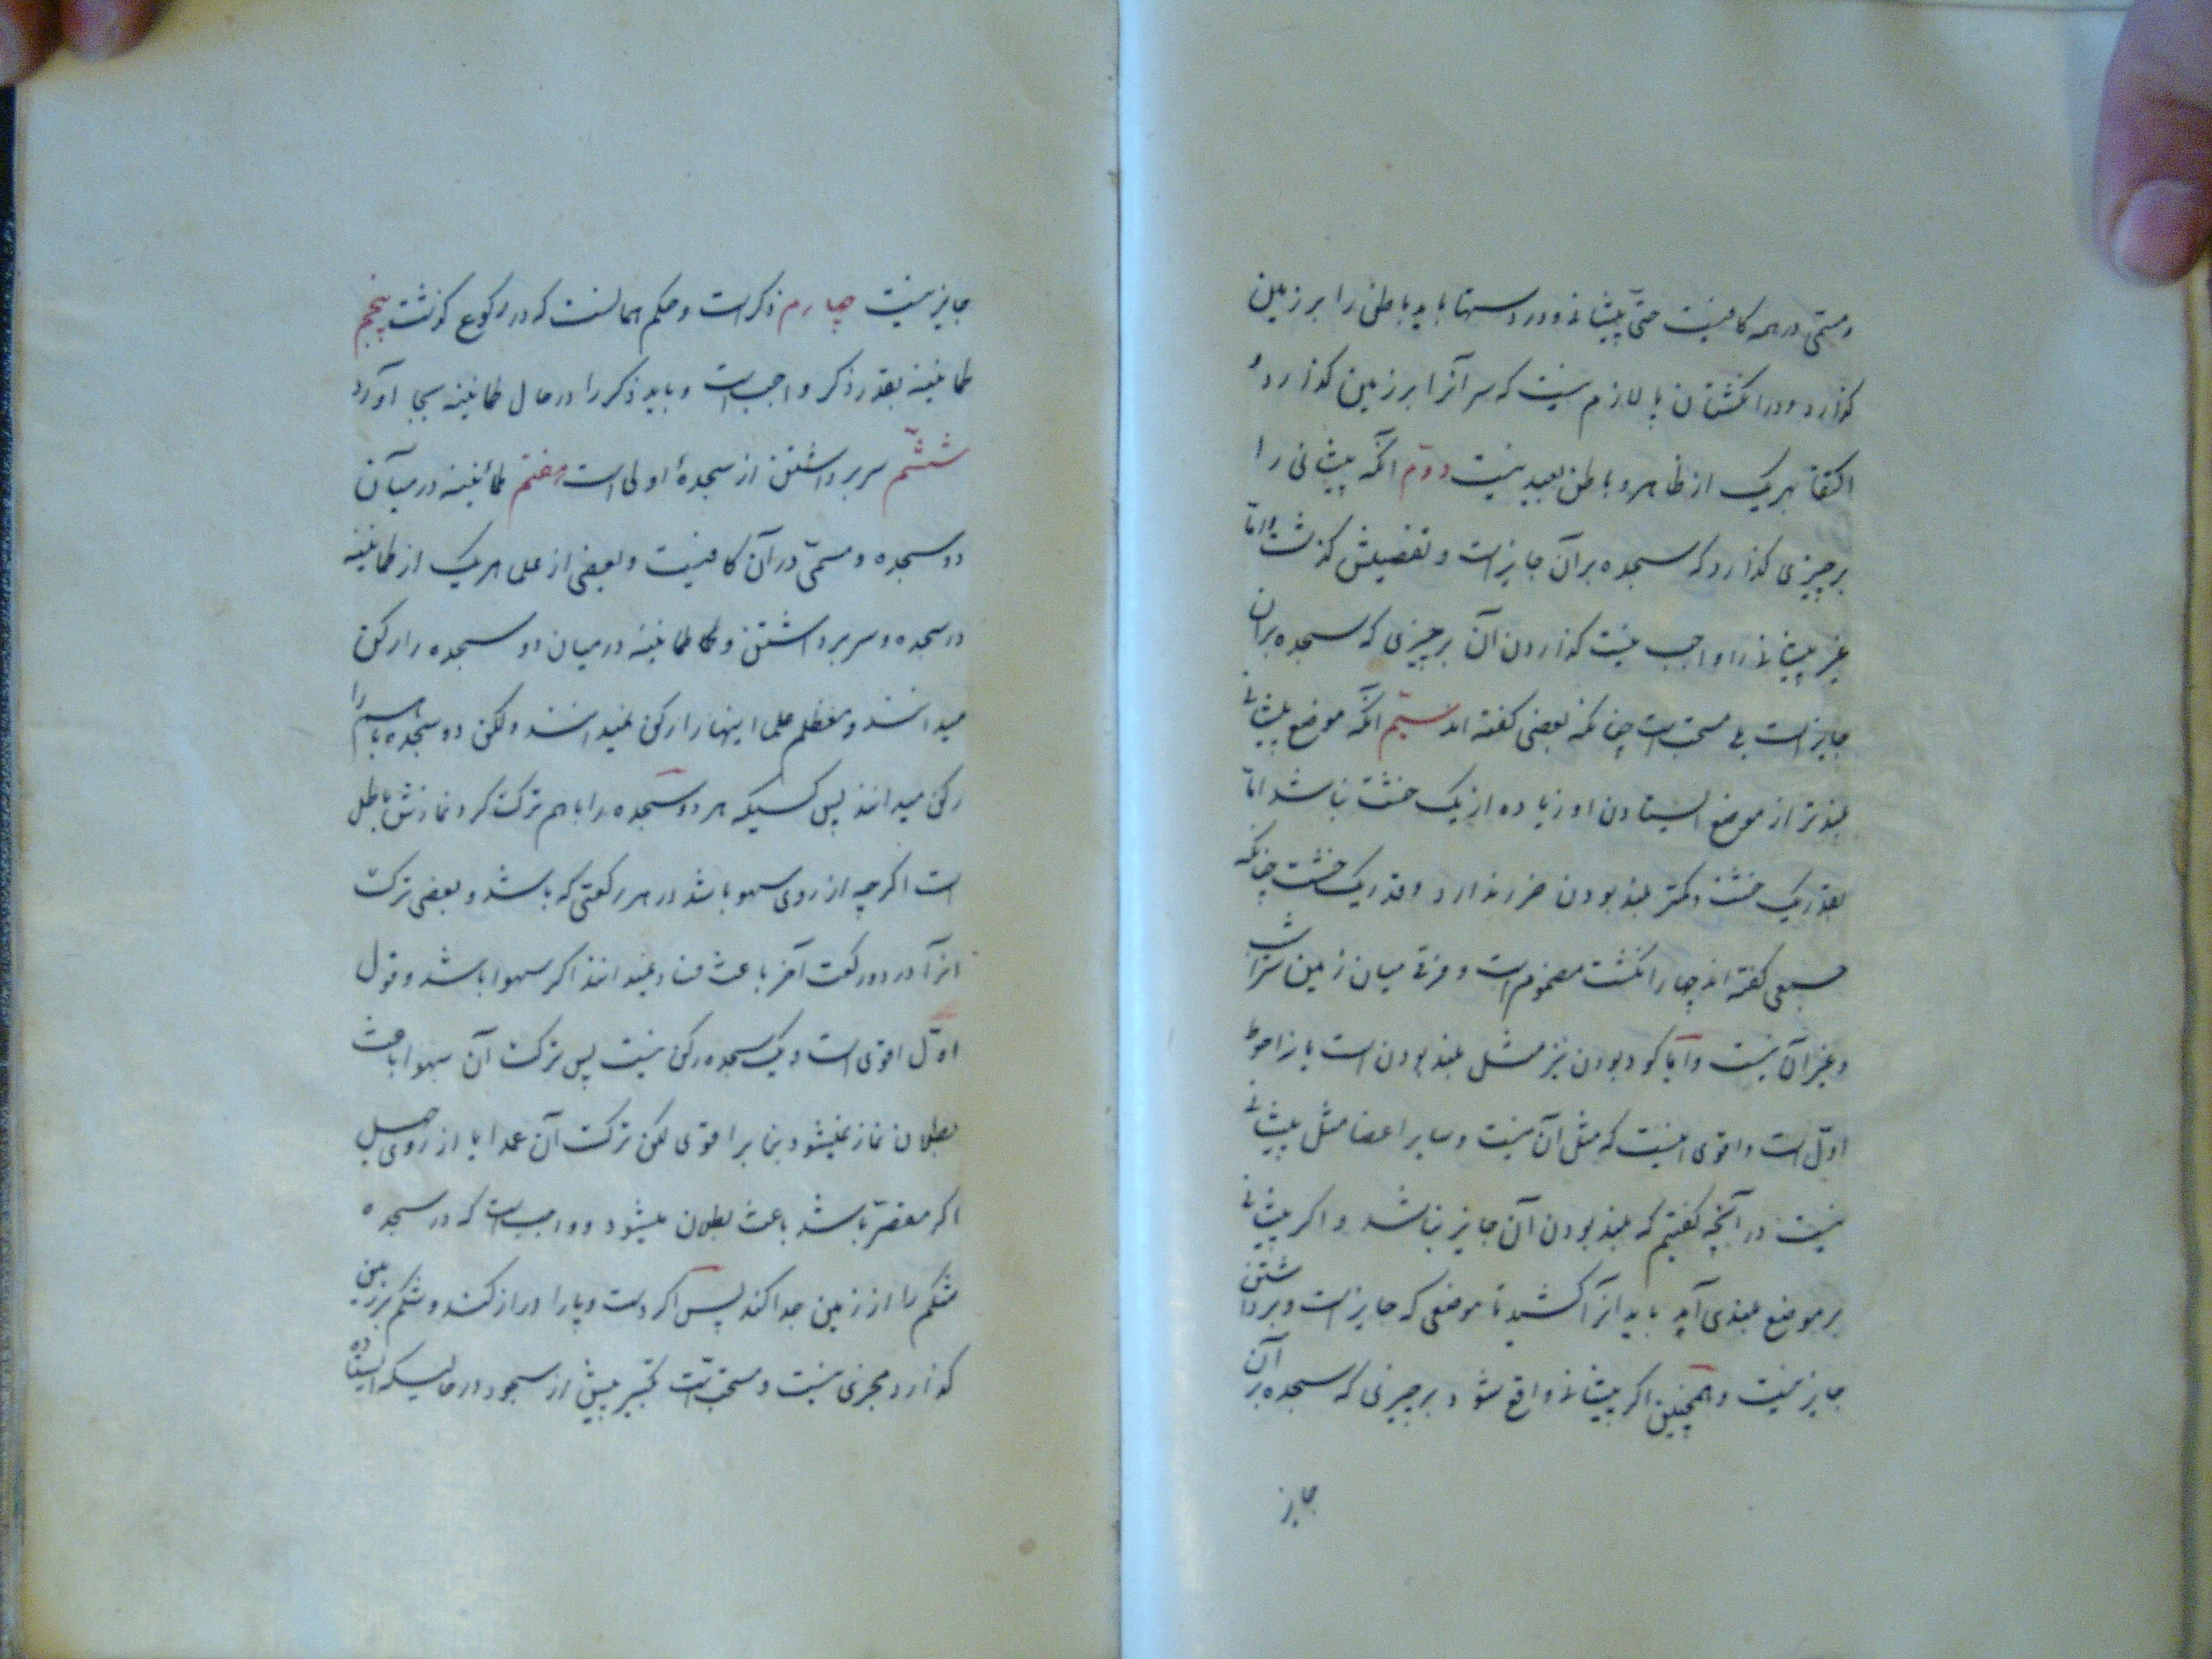 و مسمّی در همه کافیست حتّی پیشانی و در دستها باید باطن را بر زمین
گذارد و در انگشتان پا لازم نیست که سر آنرا بر زمین گذارد و
اکتفا بهریک از ظاهر و باطن بعید نیست دوّم آنکه پیشانی را
بر چیزی گذارد که سجده بر آن جایز است و تفصیلش گذشت و امّا
غیر پیشانی را واجب نیست گذاردن آن بر چیزی که سجده بر آن
جایز است بلی مستحب است چنانکه بعضی گفته اند سیّم آنکه موضع پیشانی
بلندتر از موضع ایستادن او زیاده از یک خشت نباشد امّا
بقدر یک خشت و کمتر بلند بودن ضرر ندارد و قدر یک خشت چنانکه
جمعی گفته اند چهار انگشت مضموم است و فرقی میان زمین سراشیب
و غیر آن نیست و آیا گود بودن نیز مثل بلند بودن است یا نه احوط
اوّل است و اقوی اینست که مثل آن نیست و سایر اعضا مثل پیشانی
نیست در آنچه گفتیم که بلند بودن آن جایز نباشد و اگر پیشانی
بر موضع بلندی آید باید آنرا کشید تا موضعی که جایز است و برداشتن
جایز نیست و همچنین اگر پیشانی واقع شود بر چیزی که سجده بر آن
جایز
جایز نیست چهارم ذکر است و حکم همانست که در رکوع گذشت پنجم
طمانینه بقدر ذکر واجب است و باید ذکر را در حال طمانینه بجا آورد
ششم سر برداشتن از سجدهٔ اولی است هفتم طمأنینه در میان
دو سجده و مسمّی در آن کافیست و بعضی از علما هریک از طمانینه
در سجده و سر برداشتن و طمانینه در میان دو سجده را رکن
میدانند و معظم علما اینها را رکن نمیدانند و لکن دو سجده باهم را
رکن میدانند پس کسیکه هر دو سجده را باهم ترک کرد نمازش باطل
است اگرچه از روی سهو باشد در هر رکعتی که باشد و بعضی ترک
آنرا در دو رکعت آخر باعث فساد نمیدانند اگر سهوا باشد و قول
اوّل اقوی است و یک سجده رکن نیست پس ترک آن سهوا باعث
بطلان نماز نمیشود بنا بر اقوی لکن ترک آن عمدا یا از روی جهل
اگر مقصّر باشد باعث بطلان میشود و واجب است که در سجده
شکم را از زمین جدا کند پس اگر دست و پا را دراز کند و شکم بر زمین
گذارد مجزی نیست و مستحب است تکبیر پیش از سجود در حالیکه ایستاده